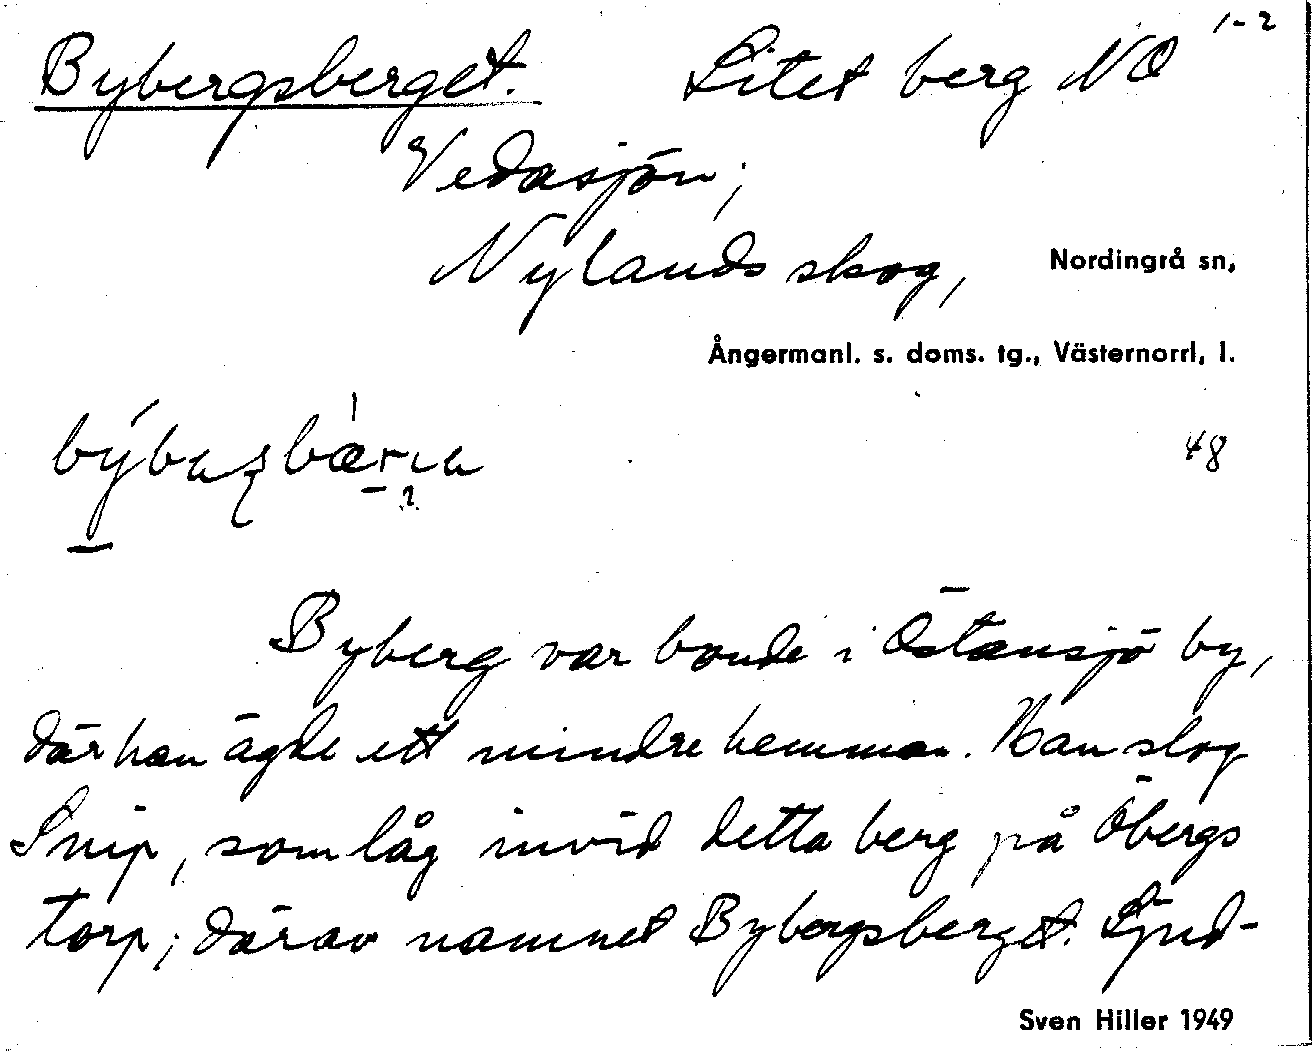 1-2
Bybergsberget. Litet berg NO
Vedasjön;
Nylands skog, Nordingrå sn,
Ångermanl. s. doms. tg., Västernorrl, l.
48
Byberg var bonde i Östansjö by,
där han ägde ett mindre hemman. Han slog
Snip, som låg invid detta berg på Öbergs
torp; därav namnet Bybergsberget. Ljud-
Sven Hiller 1949